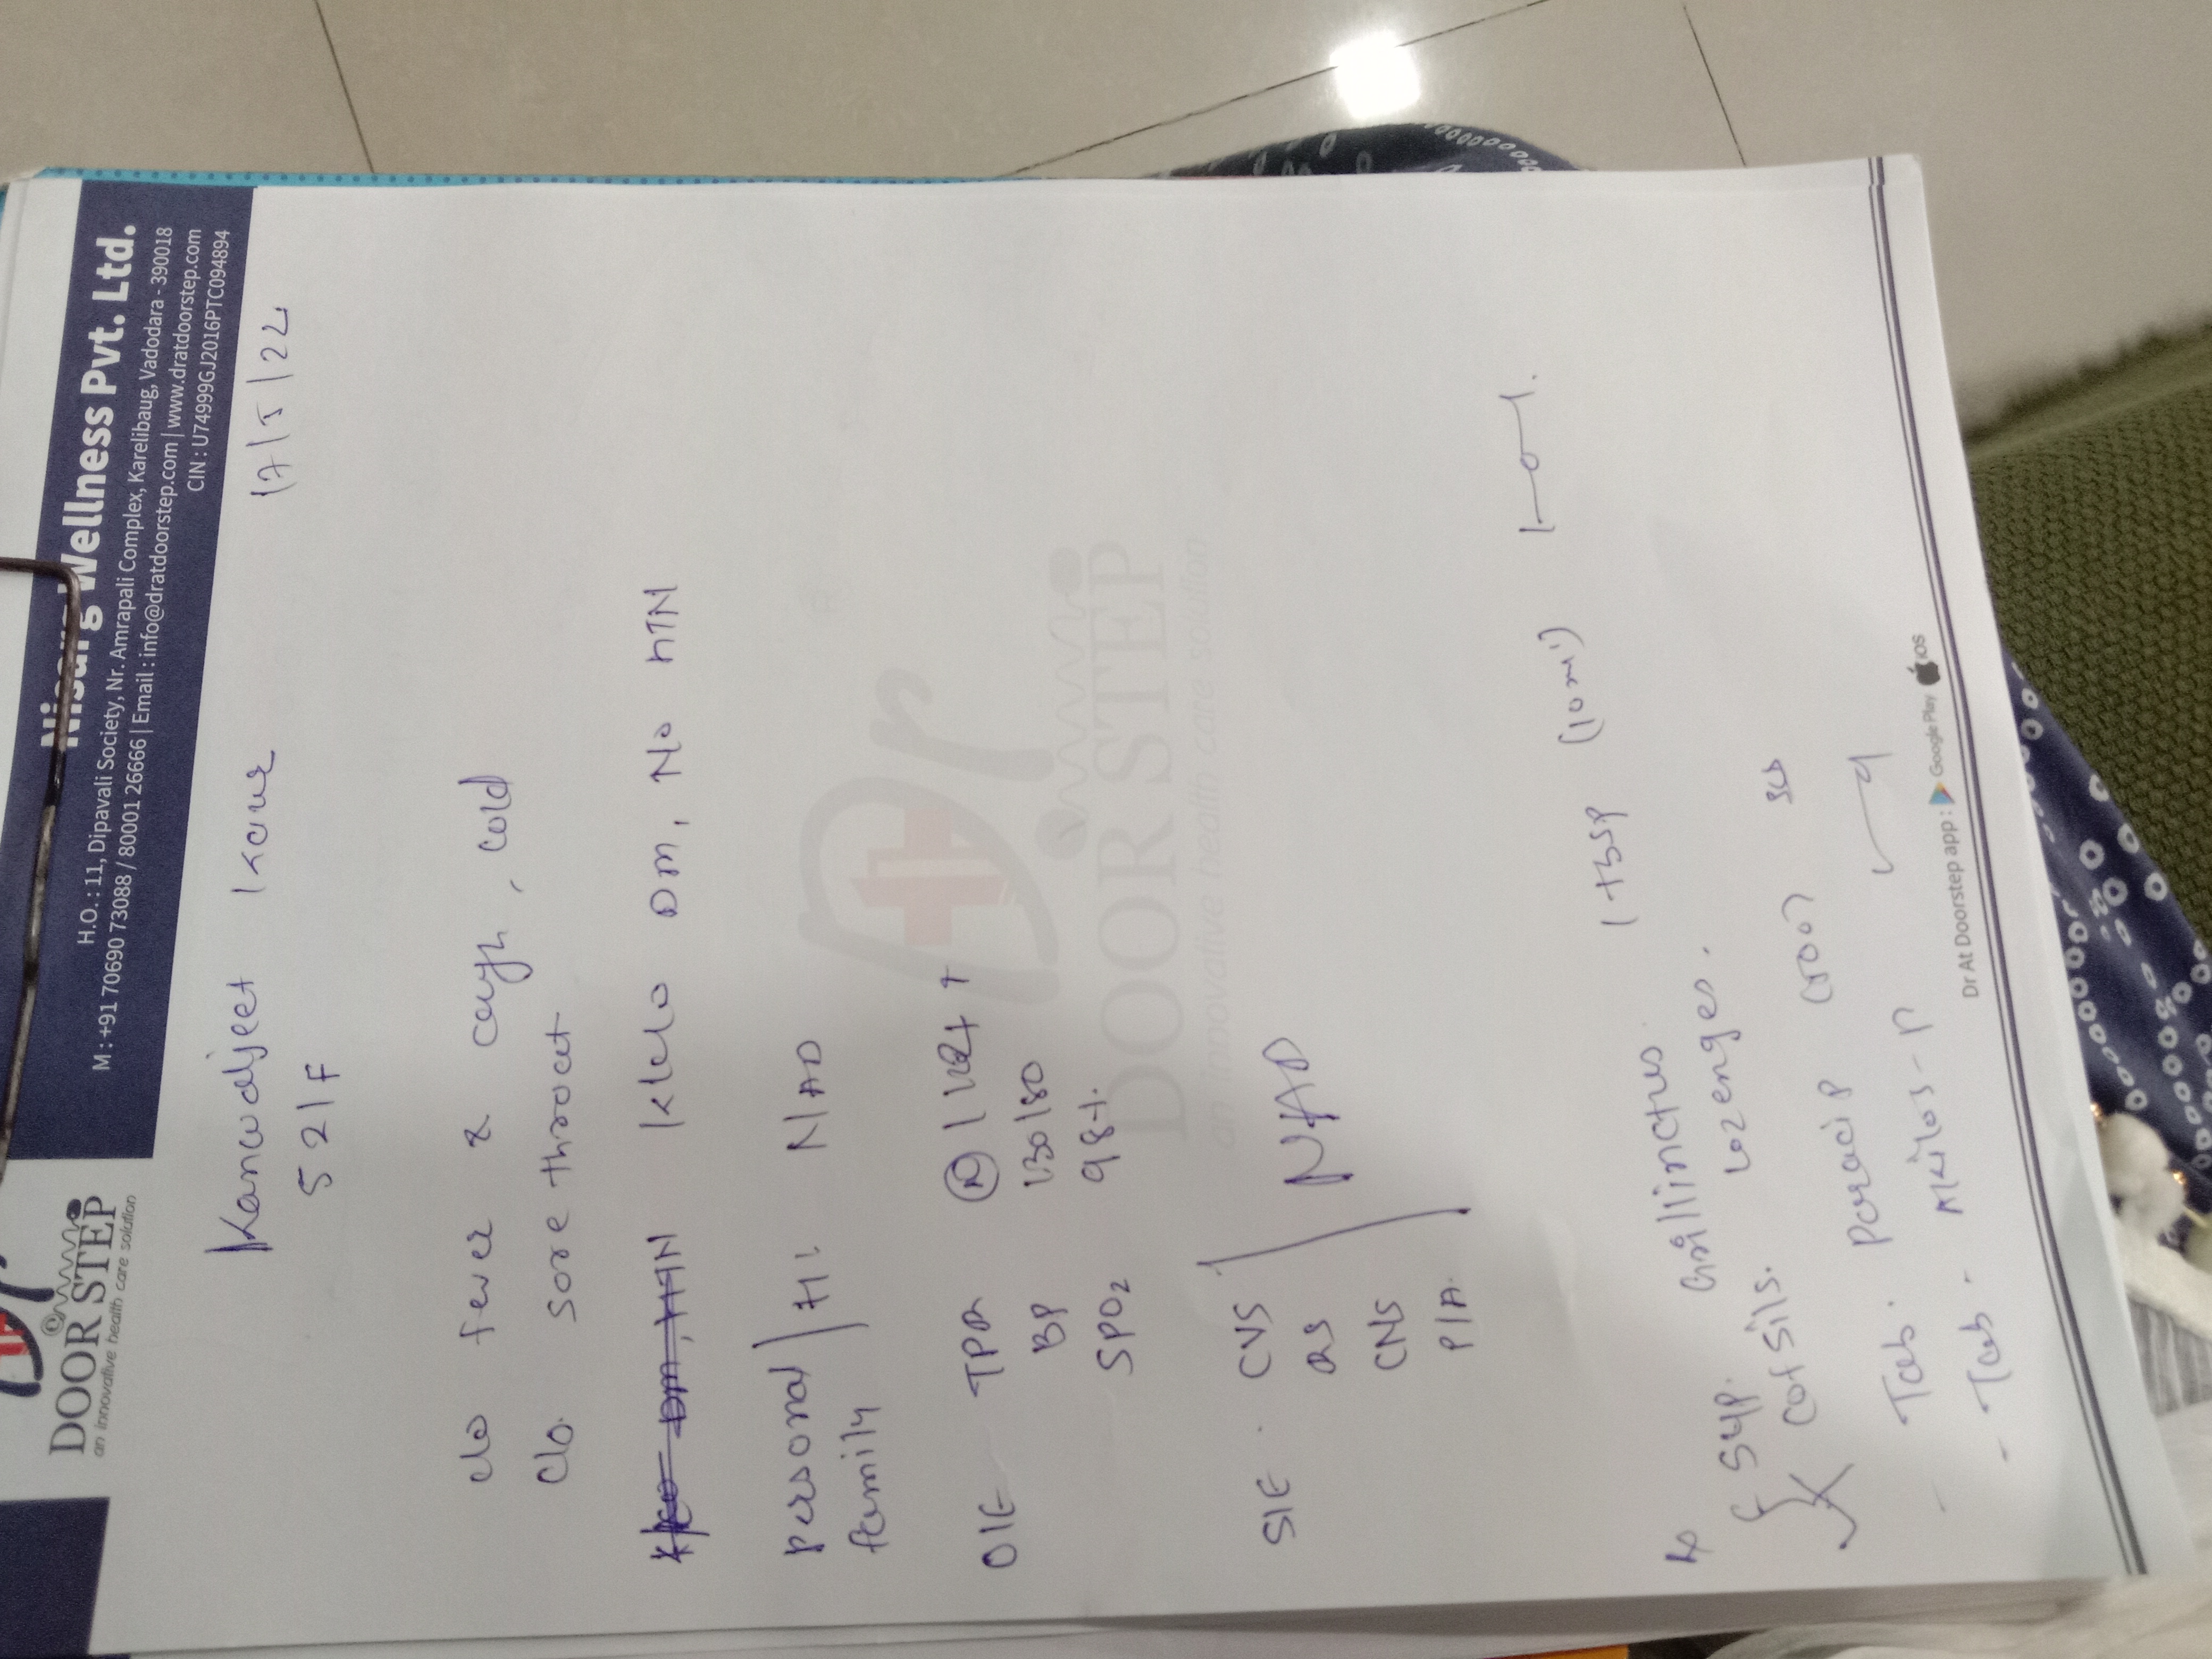 DOOR STEP
an innovative health care solution
Nisarg Wellness Pvt. Ltd.
H.O. : 11, Dipavali Society, Nr. Amrapali Complex, Karelibaug, Vadodara - 390018
M : +91 70690 73088 / 80001 26666 | Email : info@dratdoorstep.com | www.dratdoorstep.com
CIN : U74999GJ2016PTC094894
Kanwaljeet Kaur 17/5/22
52/F
c/o fever & cough, cold
c/o. sore throat
K/c/o DM, HTN K/c/o DM, No HTN
personal / H/. NAD
family
O/E TPR (N) /
BP 130/80
SPO2 98%.
S/E. CVS
RS NAD
CNS
P/A.
Dr
DOOR STEP
an innovative health care solution
Rx
Syp. Grilinctus 1 tsp (10ml) 1-0-1.
Cofsils. Lozenges.
Tab. Paracip (500) SOS
- Tab.
Dr At Doorstep app : Google Play iOS